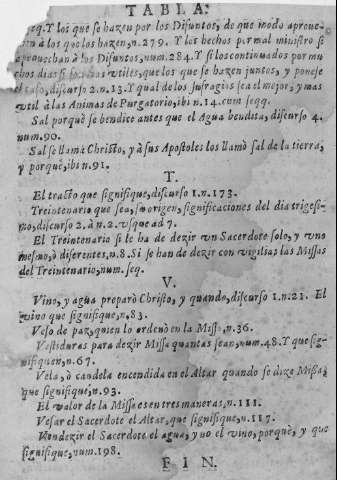 TABLA.
seqq. Y los que se hazen por los Difuntos, de que modo aprove-
en à los que los hazen, n. 279. Y los hechos por mal ministro si
aprovechan à los Difuntos, num. 284. Y si los continuados por mu
chos dias si son mas vtiles, que los que se hazen juntos, y ponese
el caso, discurso 2. n. 13. Y qual de los sufragios sea el mejor, y mas
vtil à las Animas de Purgatorio, ibi n. 14. cum seqq.
Sal porquè se bendice antes que el Agua bendita, discurso 4.
num. 90.
Sal se llamò Christo, y à sus Apostoles los llamò sal de la tierra,
y porquè, ibi n. 91.
T.
El tracto que signifique, discurso 1. n. 173.
Treintenario que sea, su origen, significaciones del dia trigesi-
mo, discurso 2. à n. 2. vsque ad 7.
El Treintenario si le ha de dezir vn Sacerdote solo, y vno
mesmo, ò diferentes, n. 8. Si se han de dezir con vigilias las Missas
del Treintenario, num. seq.
V.
Vino, y agua preparò Christo, y quando, discurso 1. n. 21. El
vino que signifique, n. 83.
Veso de paz, quien lo ordenò en la Missa, n. 36.
Vestiduras para dezir Missa quantas sean, num. 48. Y que sig-
nifiquen, n. 67.
Vela, ò candela encendida en el Altar quando se dize Missa,
que signifique, n. 93.
El valor de la Missa es en tres maneras, n. 111.
Vesar el Sacerdote el Altar, que signifique, n. 117.
Vendezir el Sacerdote el agua, y no el vino, porquè, y que
signifique, num. 198.
FIN.